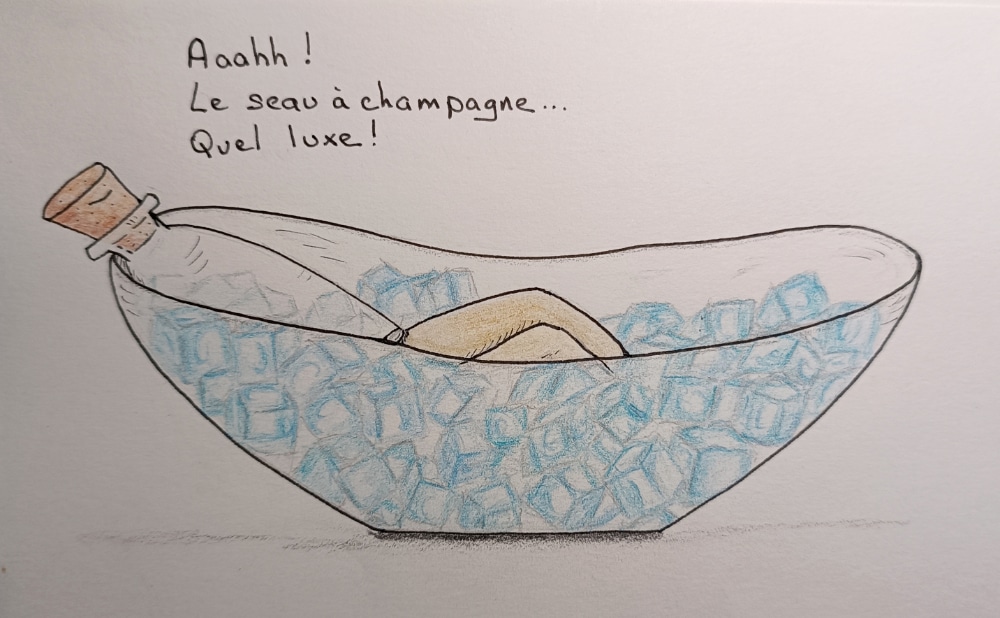 Aaahh !
Le seau à champagne...
Quel luxe !